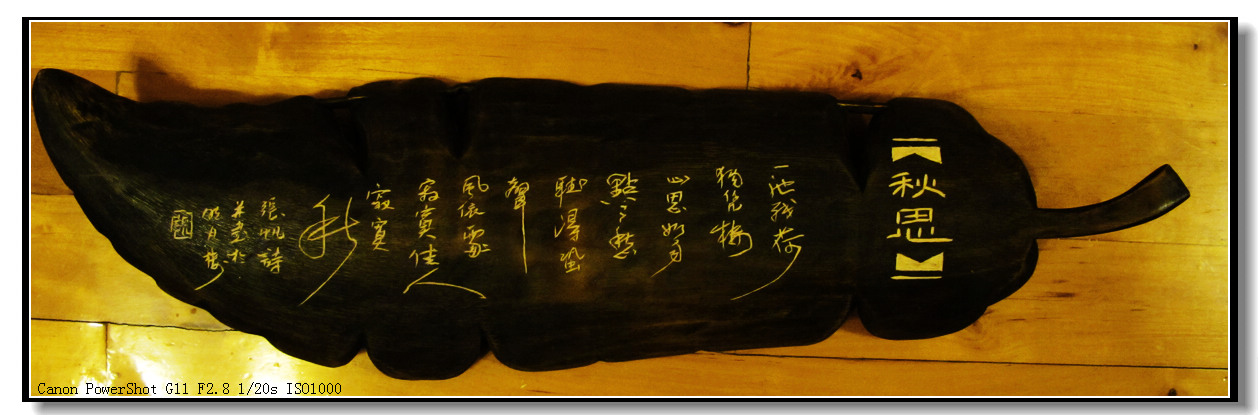 【秋思】
一池残荷
獨凭樓
心思如月
點點愁
聽得蛩
聲
風依露
寂寞佳人
寂寞
秋
張帆詩
并書於
明月樓
Canon PowerShot G11 F2.8 1/20s ISO1000